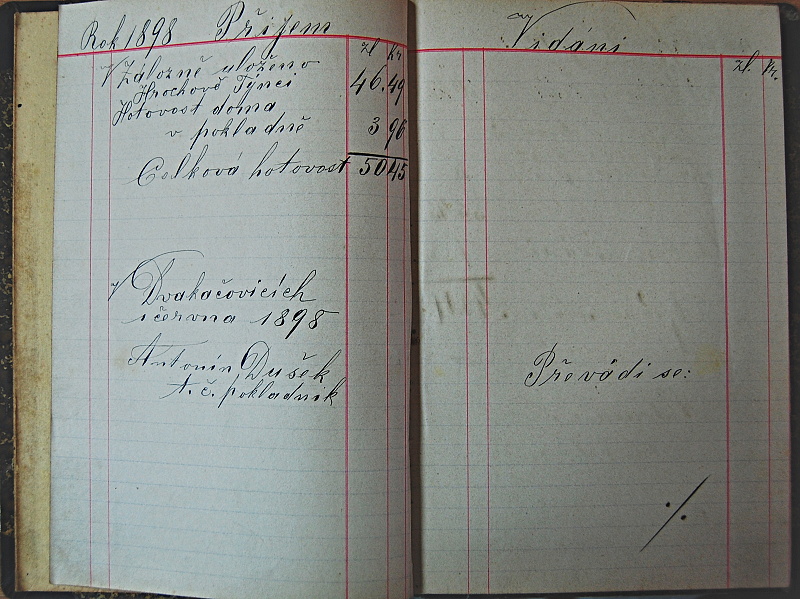 Rok 1898 Příjem
zl kr
V Záložně uloženo
Hrochově Týnci 46.49
Hotovost doma
v pokladně 3 96
Celková hotovost 50 45
V Dvakačovicích
1 června 1898
Antonín Dušek
t.č. pokladník
Vidání
zl. kr.
Převádí se:
·/.